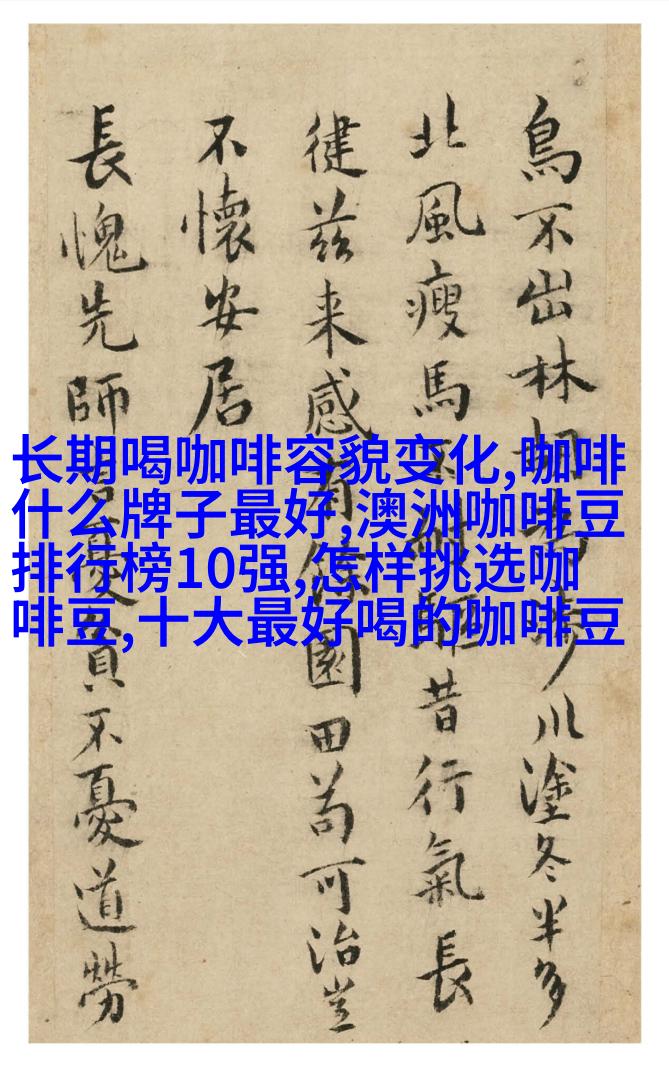 鳥不出林胡為涉川塗冬半多
北風瘦馬不耐駈昔行氣長
徤茲来感有餘園田苟可治豈
不懷安居
長愧先師言憂貧不憂道勞
长期喝咖啡容貌变化,咖啡
什么牌子最好,澳洲咖啡豆
排行榜10强,怎样挑选咖
啡豆,十大最好喝的咖啡豆